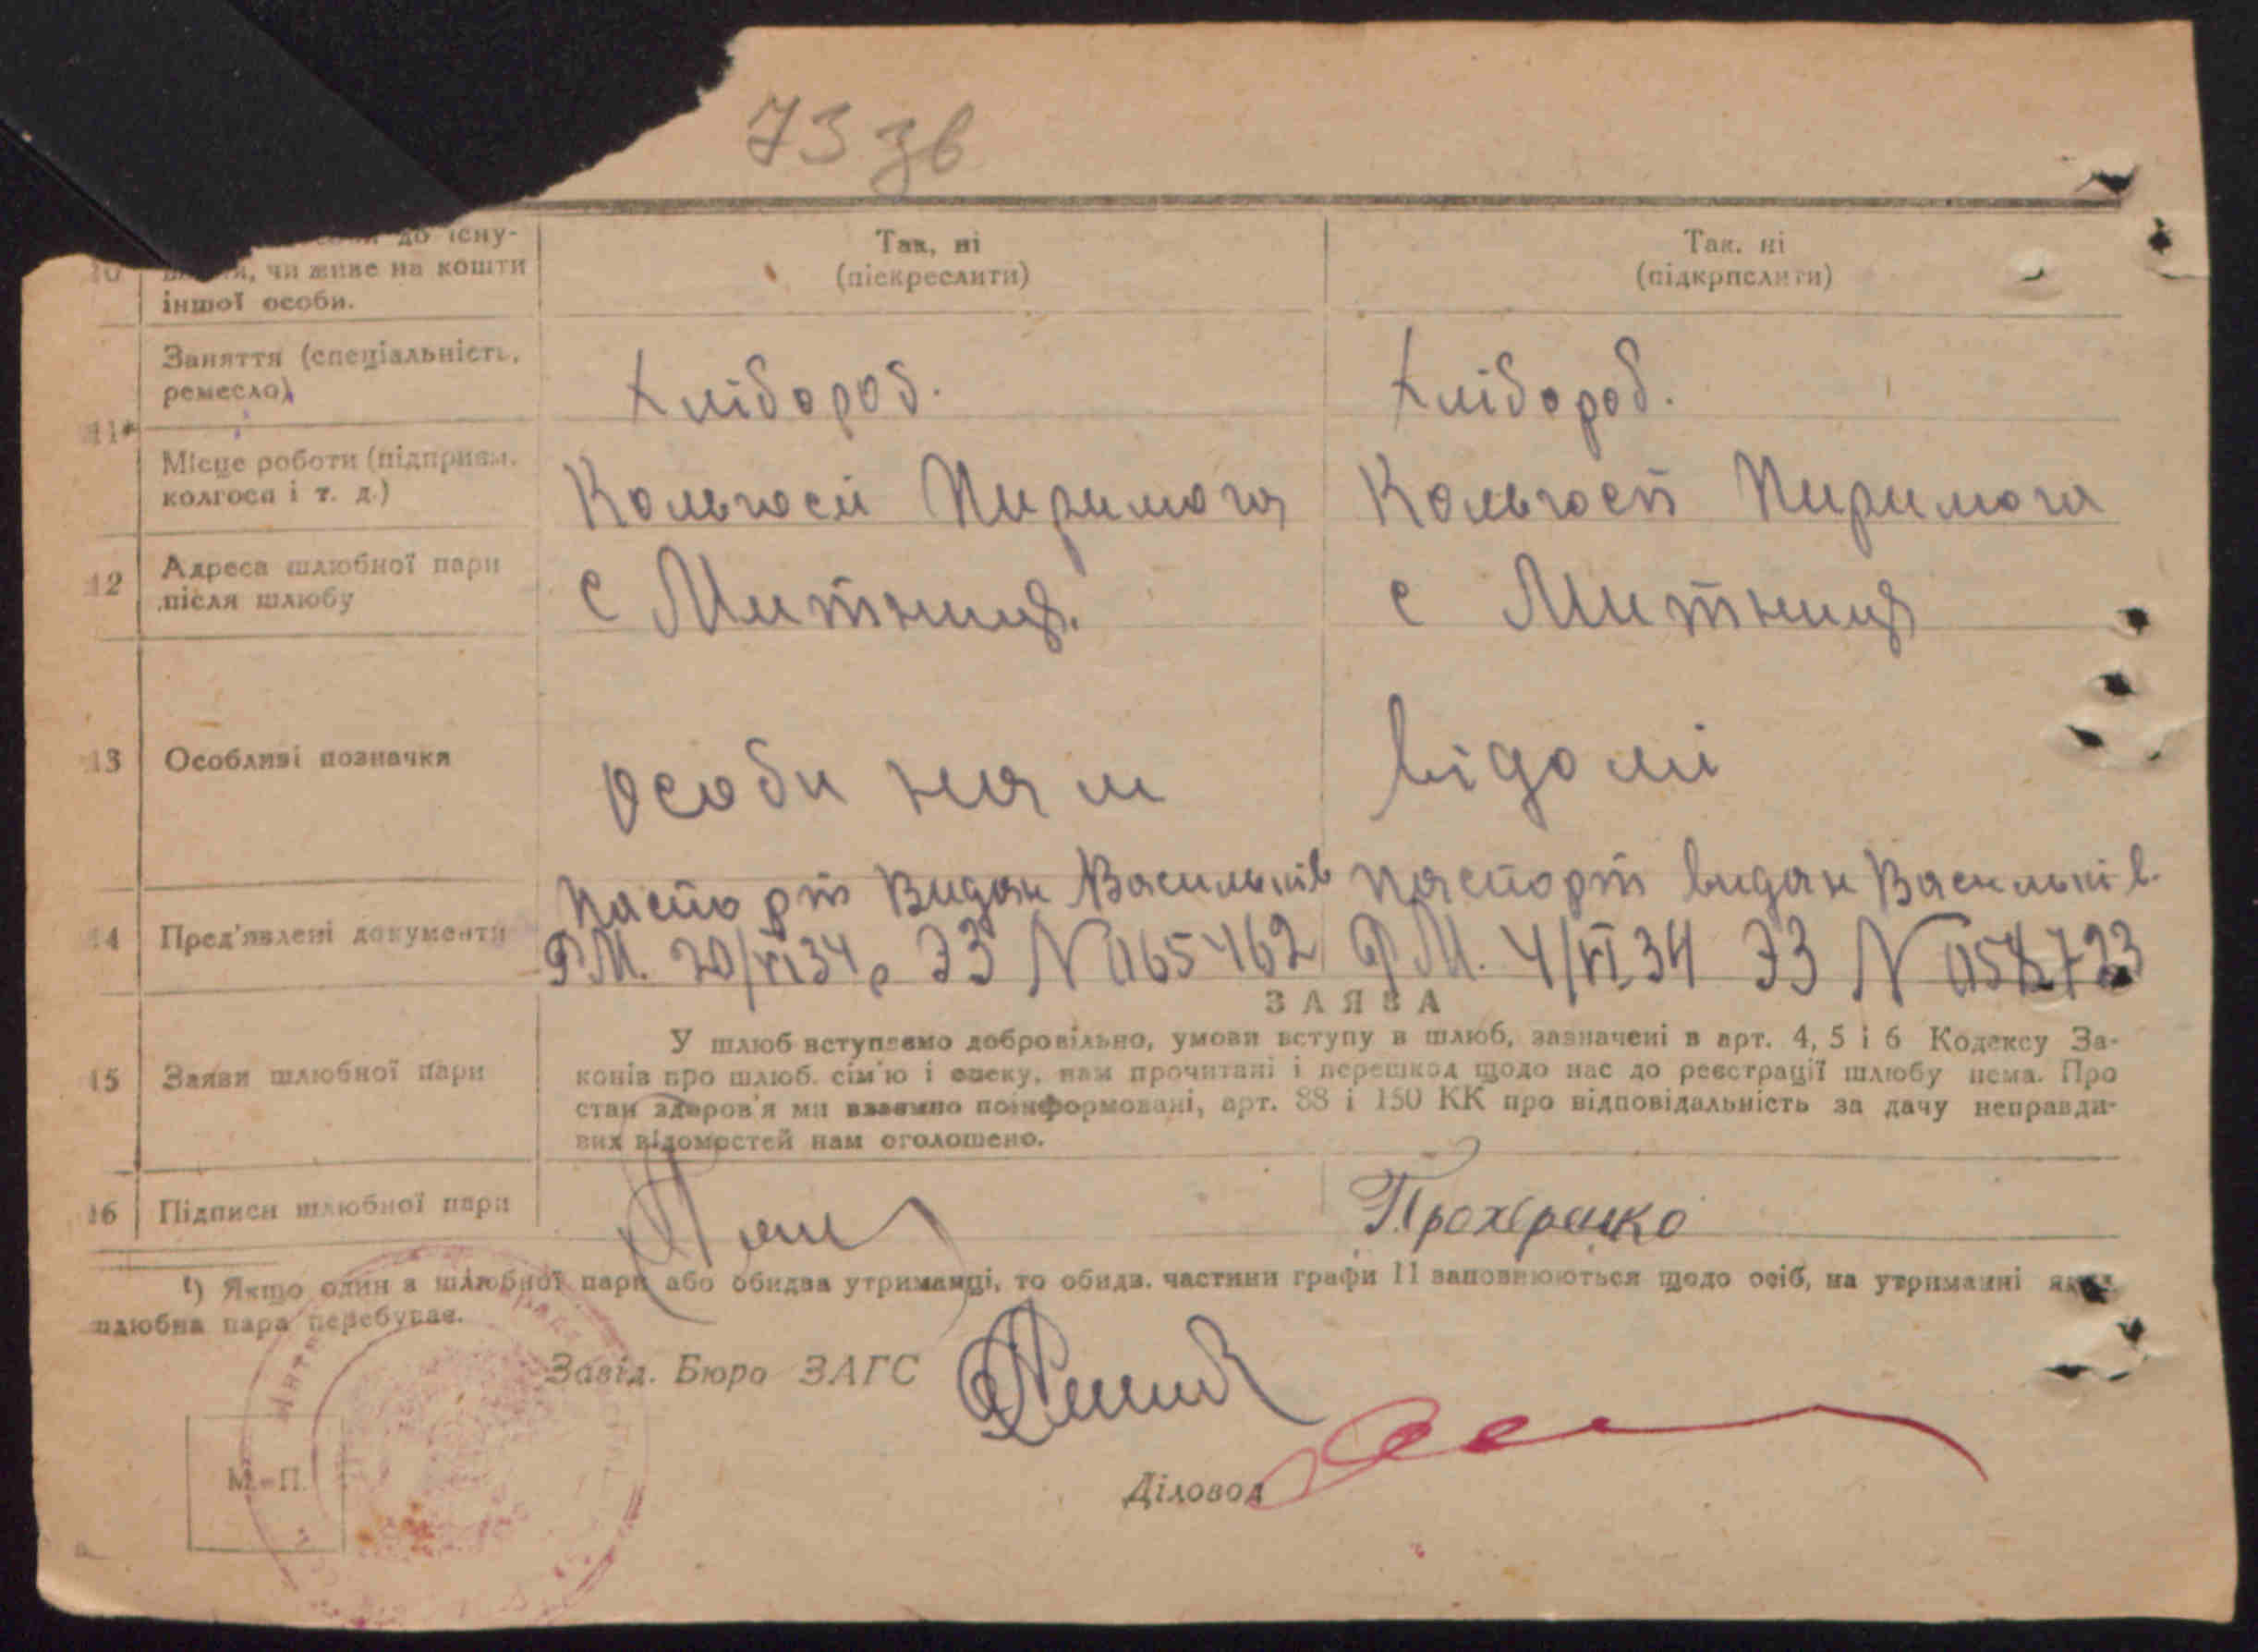 73 зв
до існу-
10 чи живе на кошти
іншої особи.
Так, ні
(піекреслити)
Так, ні
(підкрпслити)
11* Заняття (спеціальність,
ремесло)
Хлібороб.
Хлібороб.
Місце роботи (підприєм.
колгосп і т. д.)
Кольгосп Пиримога
Кольгосп Пиримога
12 Адреса шлюбної пари
після шлюбу
с Митниця.
с Митниця
13 Особливі позначки
особи нам
відомі
14 Пред'явлені документи
паспорт Видан Васильків
Р.М. 20/VI 34 р ЭЗ N 065462
паспорт видан Васильків.
Р.М. 4/VI 34 ЭЗ N
ЗАЯВА
15 Заяви шлюбної пари
У шлюб вступаємо добровільно, умови вступу в шлюб, зазначені в арт. 4, 5 і 6 Кодексу За-
конів про шлюб. сім'ю і опеку, нам прочитані і перешкод щодо нас до реєстрації шлюбу нема. Про
стан здоров'я ми взаємно поінформовані, арт. 88 і 150 КК про відповідальність за дачу неправди-
вих відомостей нам оголошено.
16 Підписи шлюбної пари
Прохоренко
¹) Якщо один з шлюбної пари або обидва утриманці, то обидв. частини графи 11 заповнюються щодо осіб, на утриманні яких
шлюбна пара перебуває.
Завід. Бюро ЗАГС
М.-П.
Діловод